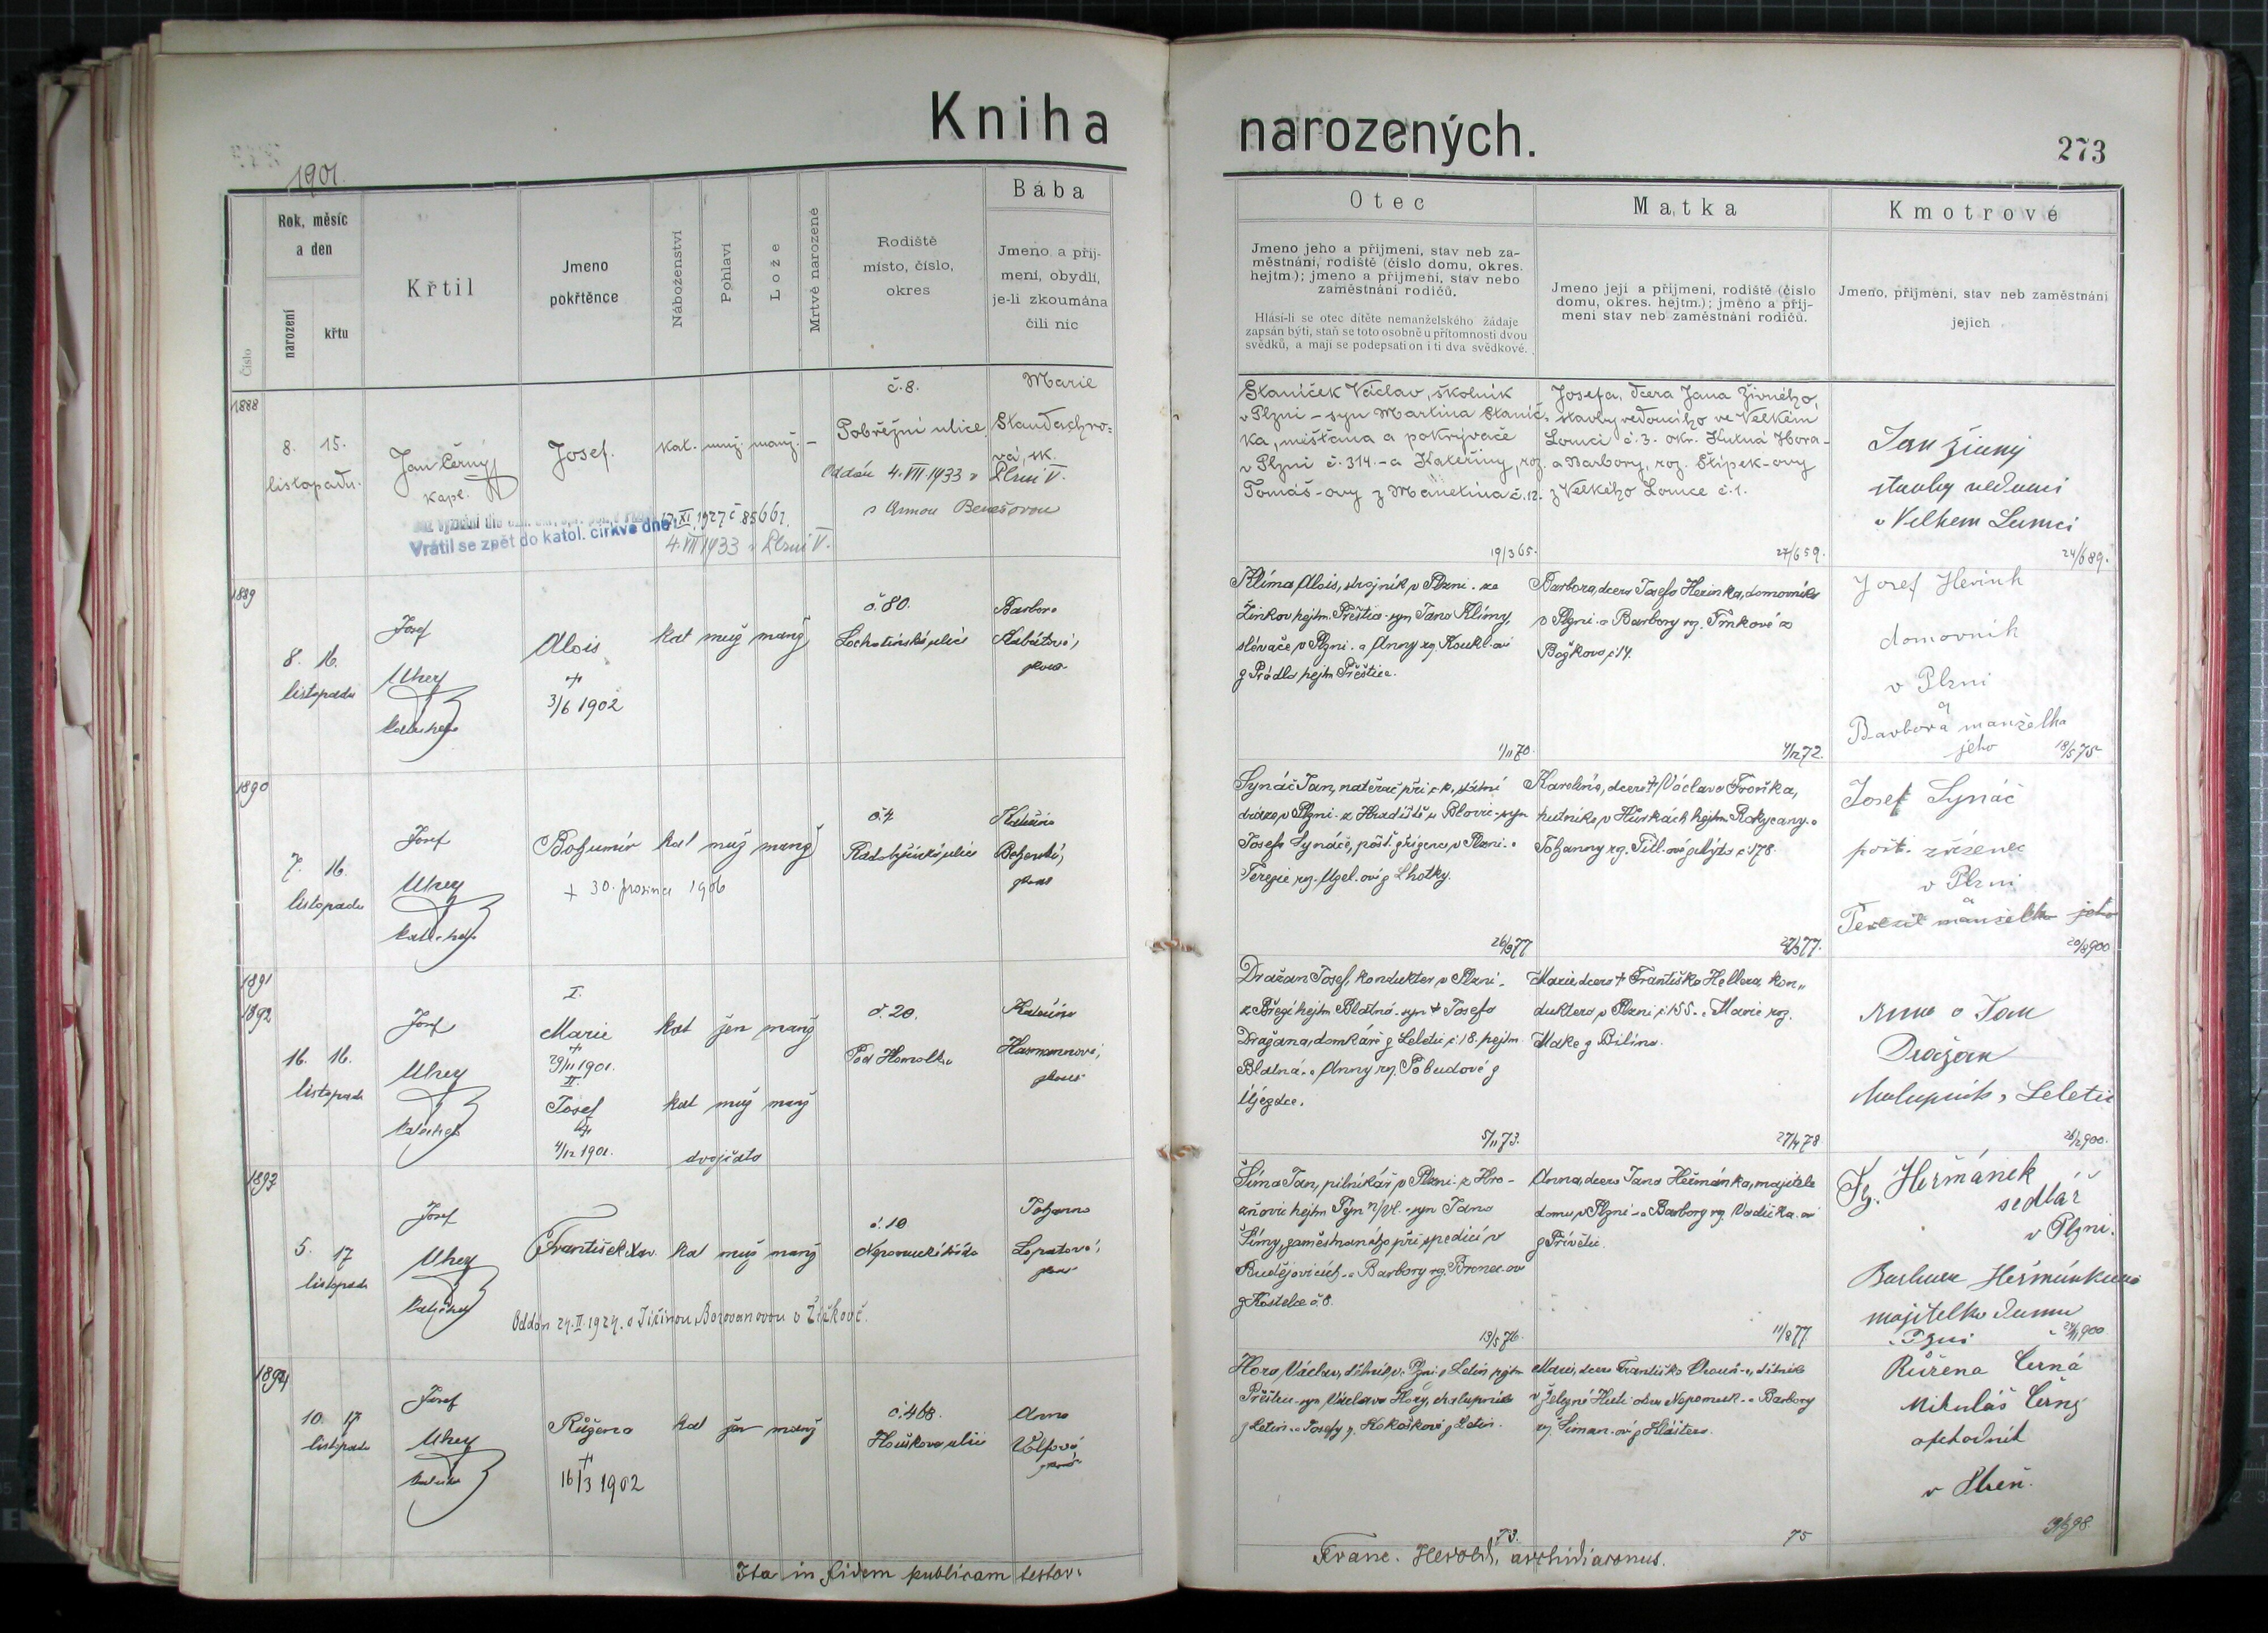 Kniha
narozených.
273
1901.
Číslo
Rok, měsíc
a den
narození
křtu
Křtil
Jmeno
pokřtěnce
Náboženství
Pohlaví
Lože
Mrtvě narozené
Rodiště
místo, číslo,
okres
Bába
Jmeno a příj-
mení, obydlí,
je-li zkoumána
čili nic
Otec
Jmeno jeho a příjmení, stav neb za-
městnání, rodiště (číslo domu, okres.
hejtm.); jmeno a příjmení, stav nebo
zaměstnání rodičů.
Hlásí-li se otec dítěte nemanželského žádaje
zapsán býti, staň se toto osobně u přítomnosti dvou
svědků, a mají se podepsati on i ti dva svědkové.
Matka
Jmeno její a příjmení, rodiště (číslo
domu, okres. hejtm.); jmeno a příj-
mení stav neb zaměstnání rodičů.
Kmotrové
Jmeno, příjmení, stav neb zaměstnání
jejich
1888
8. 15.
listopadu.
Jan Černý
kapl.
Josef.
kat. muž. manž. –
č. 8.
Pobřežní ulice.
Marie
Staudachro-
vá, zk.
Oddán 4.VII.1933 v Plzni V.
s Annou Benešovou
17.XI.1927 č 85661.
Vrátil se zpět do katol. církve dne
4.VII 1933 v Plzni V.
Staníček Václav, školník
v Plzni – syn Martina Staníč-
ka, měšťana a pokrývače
v Plzni č. 314. – a Kateřiny, roz.
Tomáš-ovy z Manětína č. 12.
19/3 65.
Josefa, dcera Jana Živného,
stavby vedoucího ve Velkém
Lomci č. 3. okr. Kutná Hora –
a Barbory, roz. Štípek-ovy
z Velkého Lomce č. 1.
27/6 59.
Jan Živný
stavby vedoucí
v Velkem Lomci
24/6 89.
1889
8. 16.
listopadu
Josef
Uhey
katecheta
Alois
+
3/6 1902
kat muž manž
č. 80.
Lochotínská ulice
Barbora
Kabátová,
Klíma Alois, strojník v Plzni. ze
Žinkov hejtm. Přeštice syn Jana Klímy,
slévače v Plzni. a Anny roz. Koukl-ové
z Prádla hejtm Přeštice.
1/11 70.
Barbora, dcera Josefa Herinka, domovníka
v Plzni. a Barbory roz. Trnkové z
Božkova č 14.
4/12 72.
Josef Herink
domovník
v Plzni
a
Barbora manželka
jeho
18/5 75
1890
7. 16.
listopadu
Josef
Uhey
katecheta
Bohumír
+ 30. prosince 1906
kat muž manž
č. 4
Radobyčická ulice
Kateřina
Synáč Jan, natěrač při c. k. státní
dráze v Plzni. z Hradiště u Blovic. syn
Josefa Synáče, pošt. zřízence v Plzni. a
Terezie roz. Uzel.ové z Lhotky.
26/8 77
Karolína, dcera + Václava Tvorka,
hutníka v Hůrkách hejtm Rokycany. a
Johanny roz. Titl-ové z Mýta č 178.
27/3 77.
Josef Synáč
pošt. zřízenec
v Plzni
a
Terezie manželka jeho
20/8 900
1891
1892
16. 16.
listopadu
Josef
Uhey
katecheta
I.
Marie
+
29/11 1901.
II.
Josef
4/12 1901.
kat žen manž
kat muž manž
dvojčata
č. 20.
Pod Homolkou
Kateřina
Dražan Josef, konduktér v Plzni.
z Březí hejtm Blatná. syn + Josefa
Dražana, domkáře z Leletic č 18. hejtm.
Blatná. a Anny roz. Pobudové z
Újezdce.
5/11 73.
Marie, dcera + Františka Hellera kon-
duktera v Plzni č 155. a Marie roz.
Make z Bíliny.
27/4 78
Anna a Jan
Dražan
chalupník, Leletic
26/2 900.
1893
5. 17
listopadu
Josef
Uhey
katecheta
František Xav.
kat muž manž
č. 10
Nepomucká třída
Johanna
Lopatová,
Oddán 24.II.1924. s Jiřinou Borovanovou v Žižkově.
Šíma Jan, pilníkář v Plzni. z Hro-
ňovic hejtm Týn n/Vl. syn Jana
Šímy, zaměstnaného při spedici v
Budějovicích. a Barbory roz. Bronec-ové
z Kostelce č. 8.
13/5 76.
Anna, dcera Jana Heřmánka, majitele
domu v Plzni a Barbory roz. Vodička-ové
z Přívětic.
11/8 77.
Fr. Heřmánek
sedlář
v Plzni.
Barbora Heřmánková
majitelka domu
v Plzni
1894
10. 17.
listopadu
Josef
Uhey
katecheta
Růžena
+
16/3 1902
kat žen manž
č. 468.
Houškova ulice
Anna
Volfová,
Hora Václav, dělník v Plzni z Letin hejtm
Přeštice. syn Václava Hory, chalupníka
z Letin. a Josefy r. Kokoškové z Letin.
73.
Marie, dcera Františka Chouň-a, dělníka
v Železné Huti okres Nepomuk. a Barbory
roz. Šiman-ové z Kláštera.
75
Růžena Černá
Mikuláš Černý
obchodník
v Plzni.
Ita in fidem publicam testor.
Franc. Herold, archidiaconus.